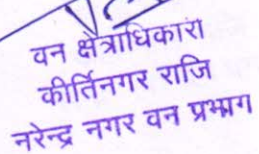 वन क्षेत्राधिकारी
कीर्तिनगर राजि
नरेन्द्र नगर वन प्रभाग